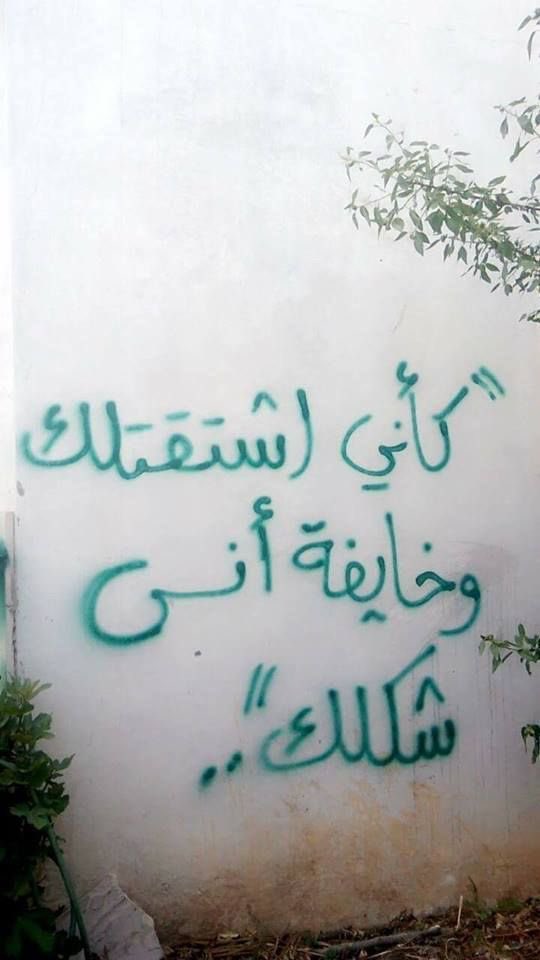 "كأني اشتقتلك
وخايفة أنسى
شكلك"..